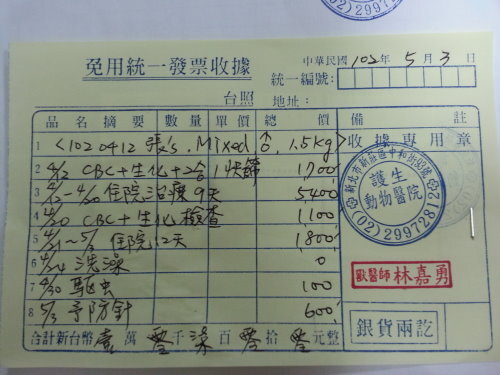 免用統一發票收據
中華民國 102年 5月 3日
統一編號:
台照 地址:
品名摘要 數量 單價 總價 備註
1 <1020412 張's, Mixed, ♂, 1.5kg> 收據專用章
2 4/12 CBC+生化+二合1快篩 1,700
3 4/12-4/20 住院治療9天 5,400
4 4/20 CBC+生化檢查 1,100
5 4/21~5/3 住院12天 1,800
6 4/24 洗澡 0
7 4/30 驅虫 100
8 5/3 予防針 600
合計新台幣 壹萬 零千 柒百 零拾 零元整
新北市新莊區中和街93號
護生
動物醫院
(02)29972812
獸醫師 林嘉勇
銀貨兩訖